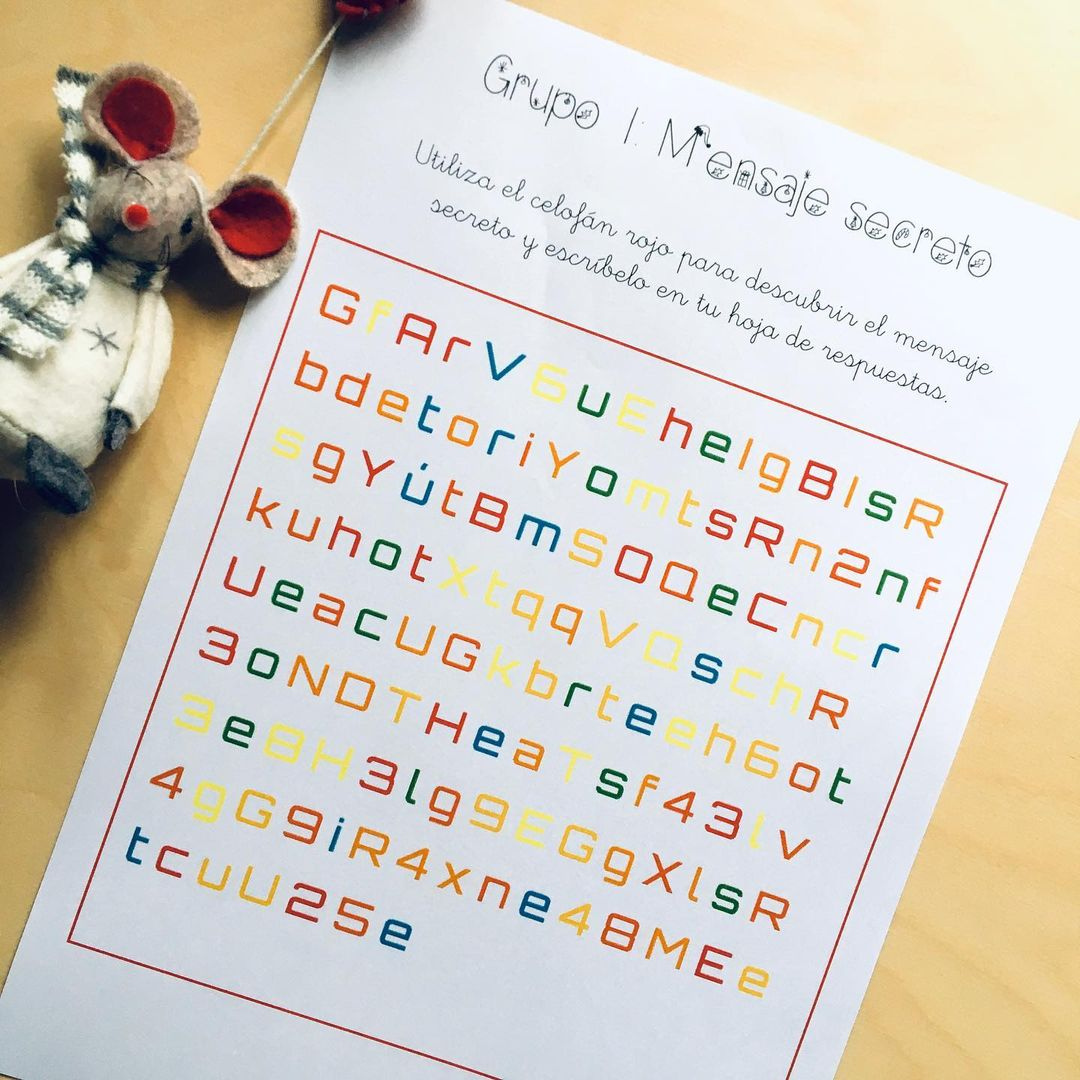 Grupo 1: Mensaje secreto
Utiliza el celofán rojo para descubrir el mensaje
secreto y escríbelo en tu hoja de respuestas.
GfArV6uEheIgBIsR
bdetoriYomtsRn2nf
sgYútBmSOQeCncr
kuhotXtqqVQschR
UeacUGkbrteeh6ot
3oNDTHeaTsf43lv
3e8H3lg9EGgXlsR
4gG9iR4xne48MEe
tcuU25e